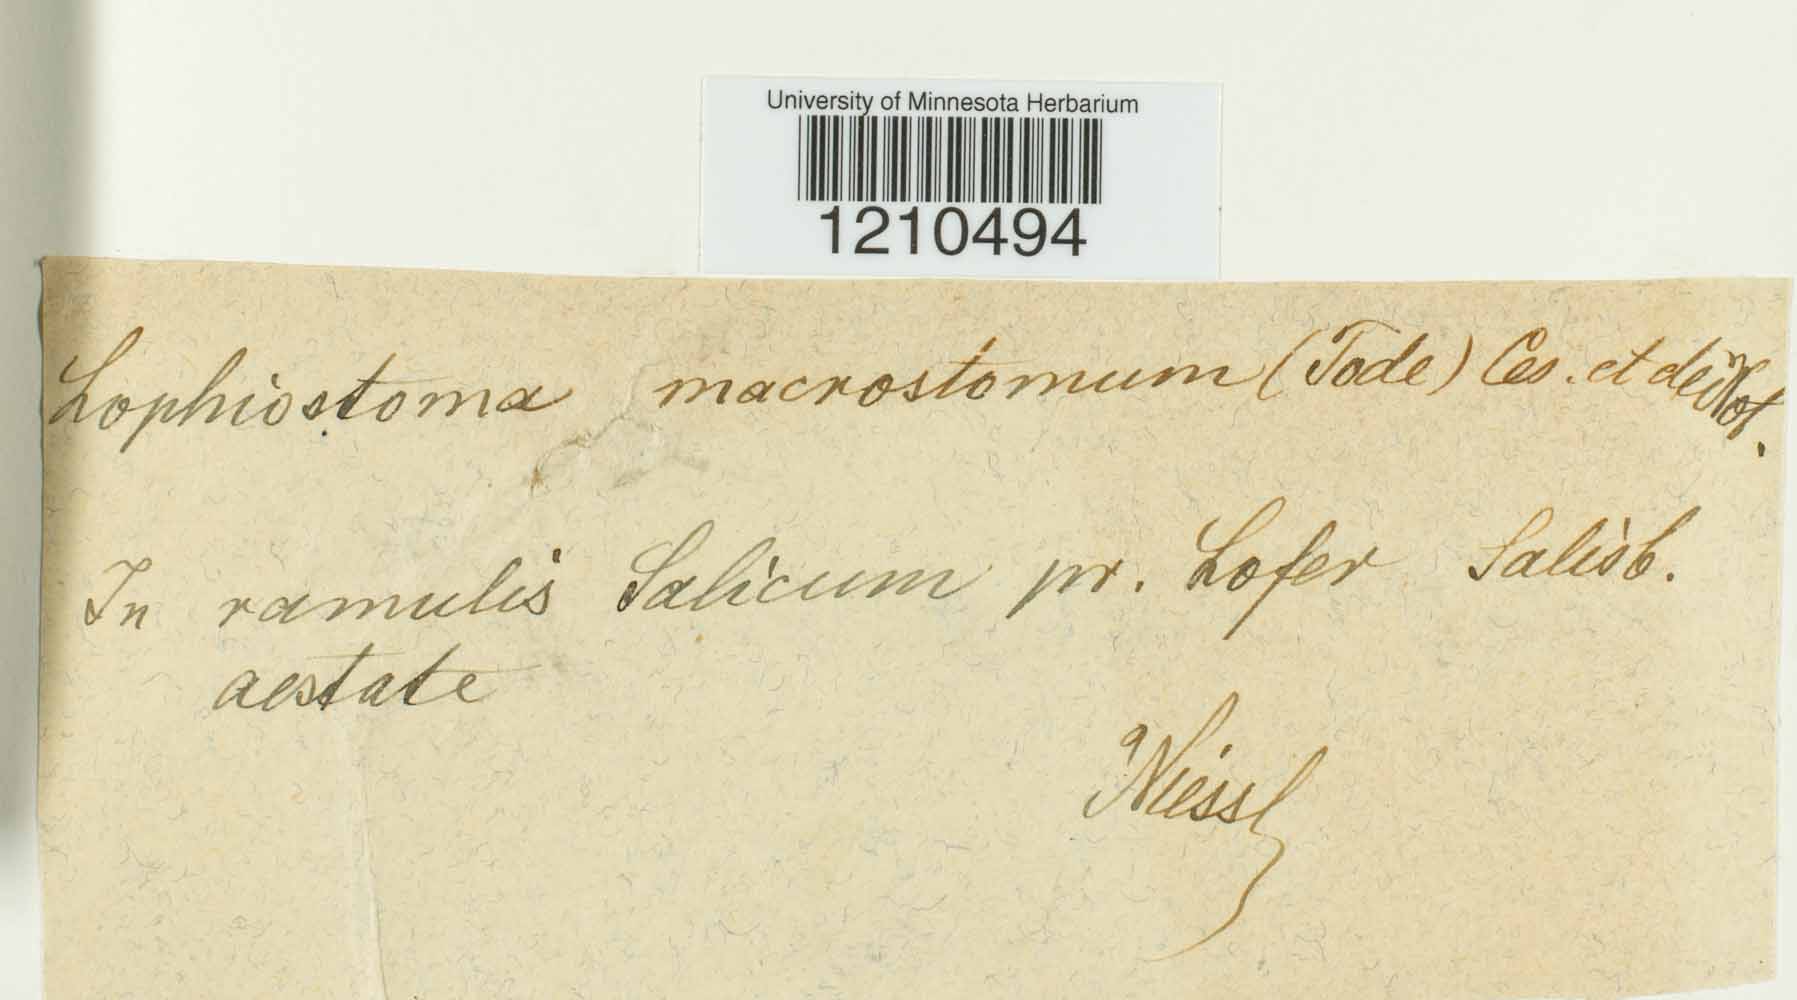 University of Minnesota Herbarium
1210494
Lophiostoma macrostomum (Tode) Ces. et de Not.
In ramulis Salicum pr. Lofer Salisb.
aestate
Niessl